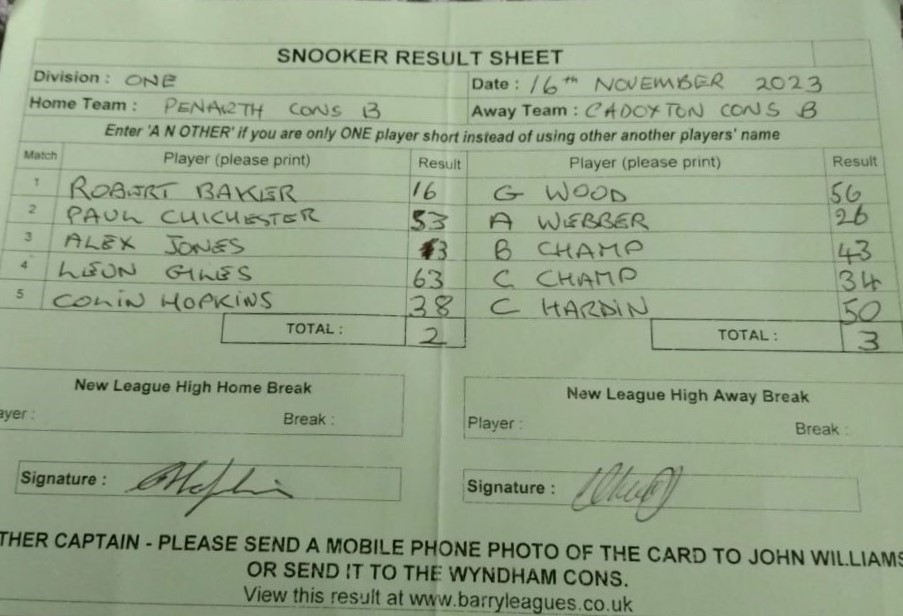 SNOOKER RESULT SHEET
Division : ONE Date : 16th NOVEMBER 2023
Home Team : PENARTH CONS B Away Team : CADOXTON CONS B
Enter 'A N OTHER' if you are only ONE player short instead of using other another players' name
Match Player (please print) Result Player (please print) Result
1 ROBERT BAKER 16 G WOOD 56
2 PAUL CHICHESTER 53 A WEBBER 26
3 ALEX JONES 13 B CHAMP 43
4 LEON GILES 63 C CHAMP 34
5 COLIN HOPKINS 38 C HARDIN 50
TOTAL : 2 TOTAL : 3
New League High Home Break New League High Away Break
ayer : Break : Player : Break :
Signature : Signature :
THER CAPTAIN - PLEASE SEND A MOBILE PHONE PHOTO OF THE CARD TO JOHN WILLIAMS
OR SEND IT TO THE WYNDHAM CONS.
View this result at www.barryleagues.co.uk